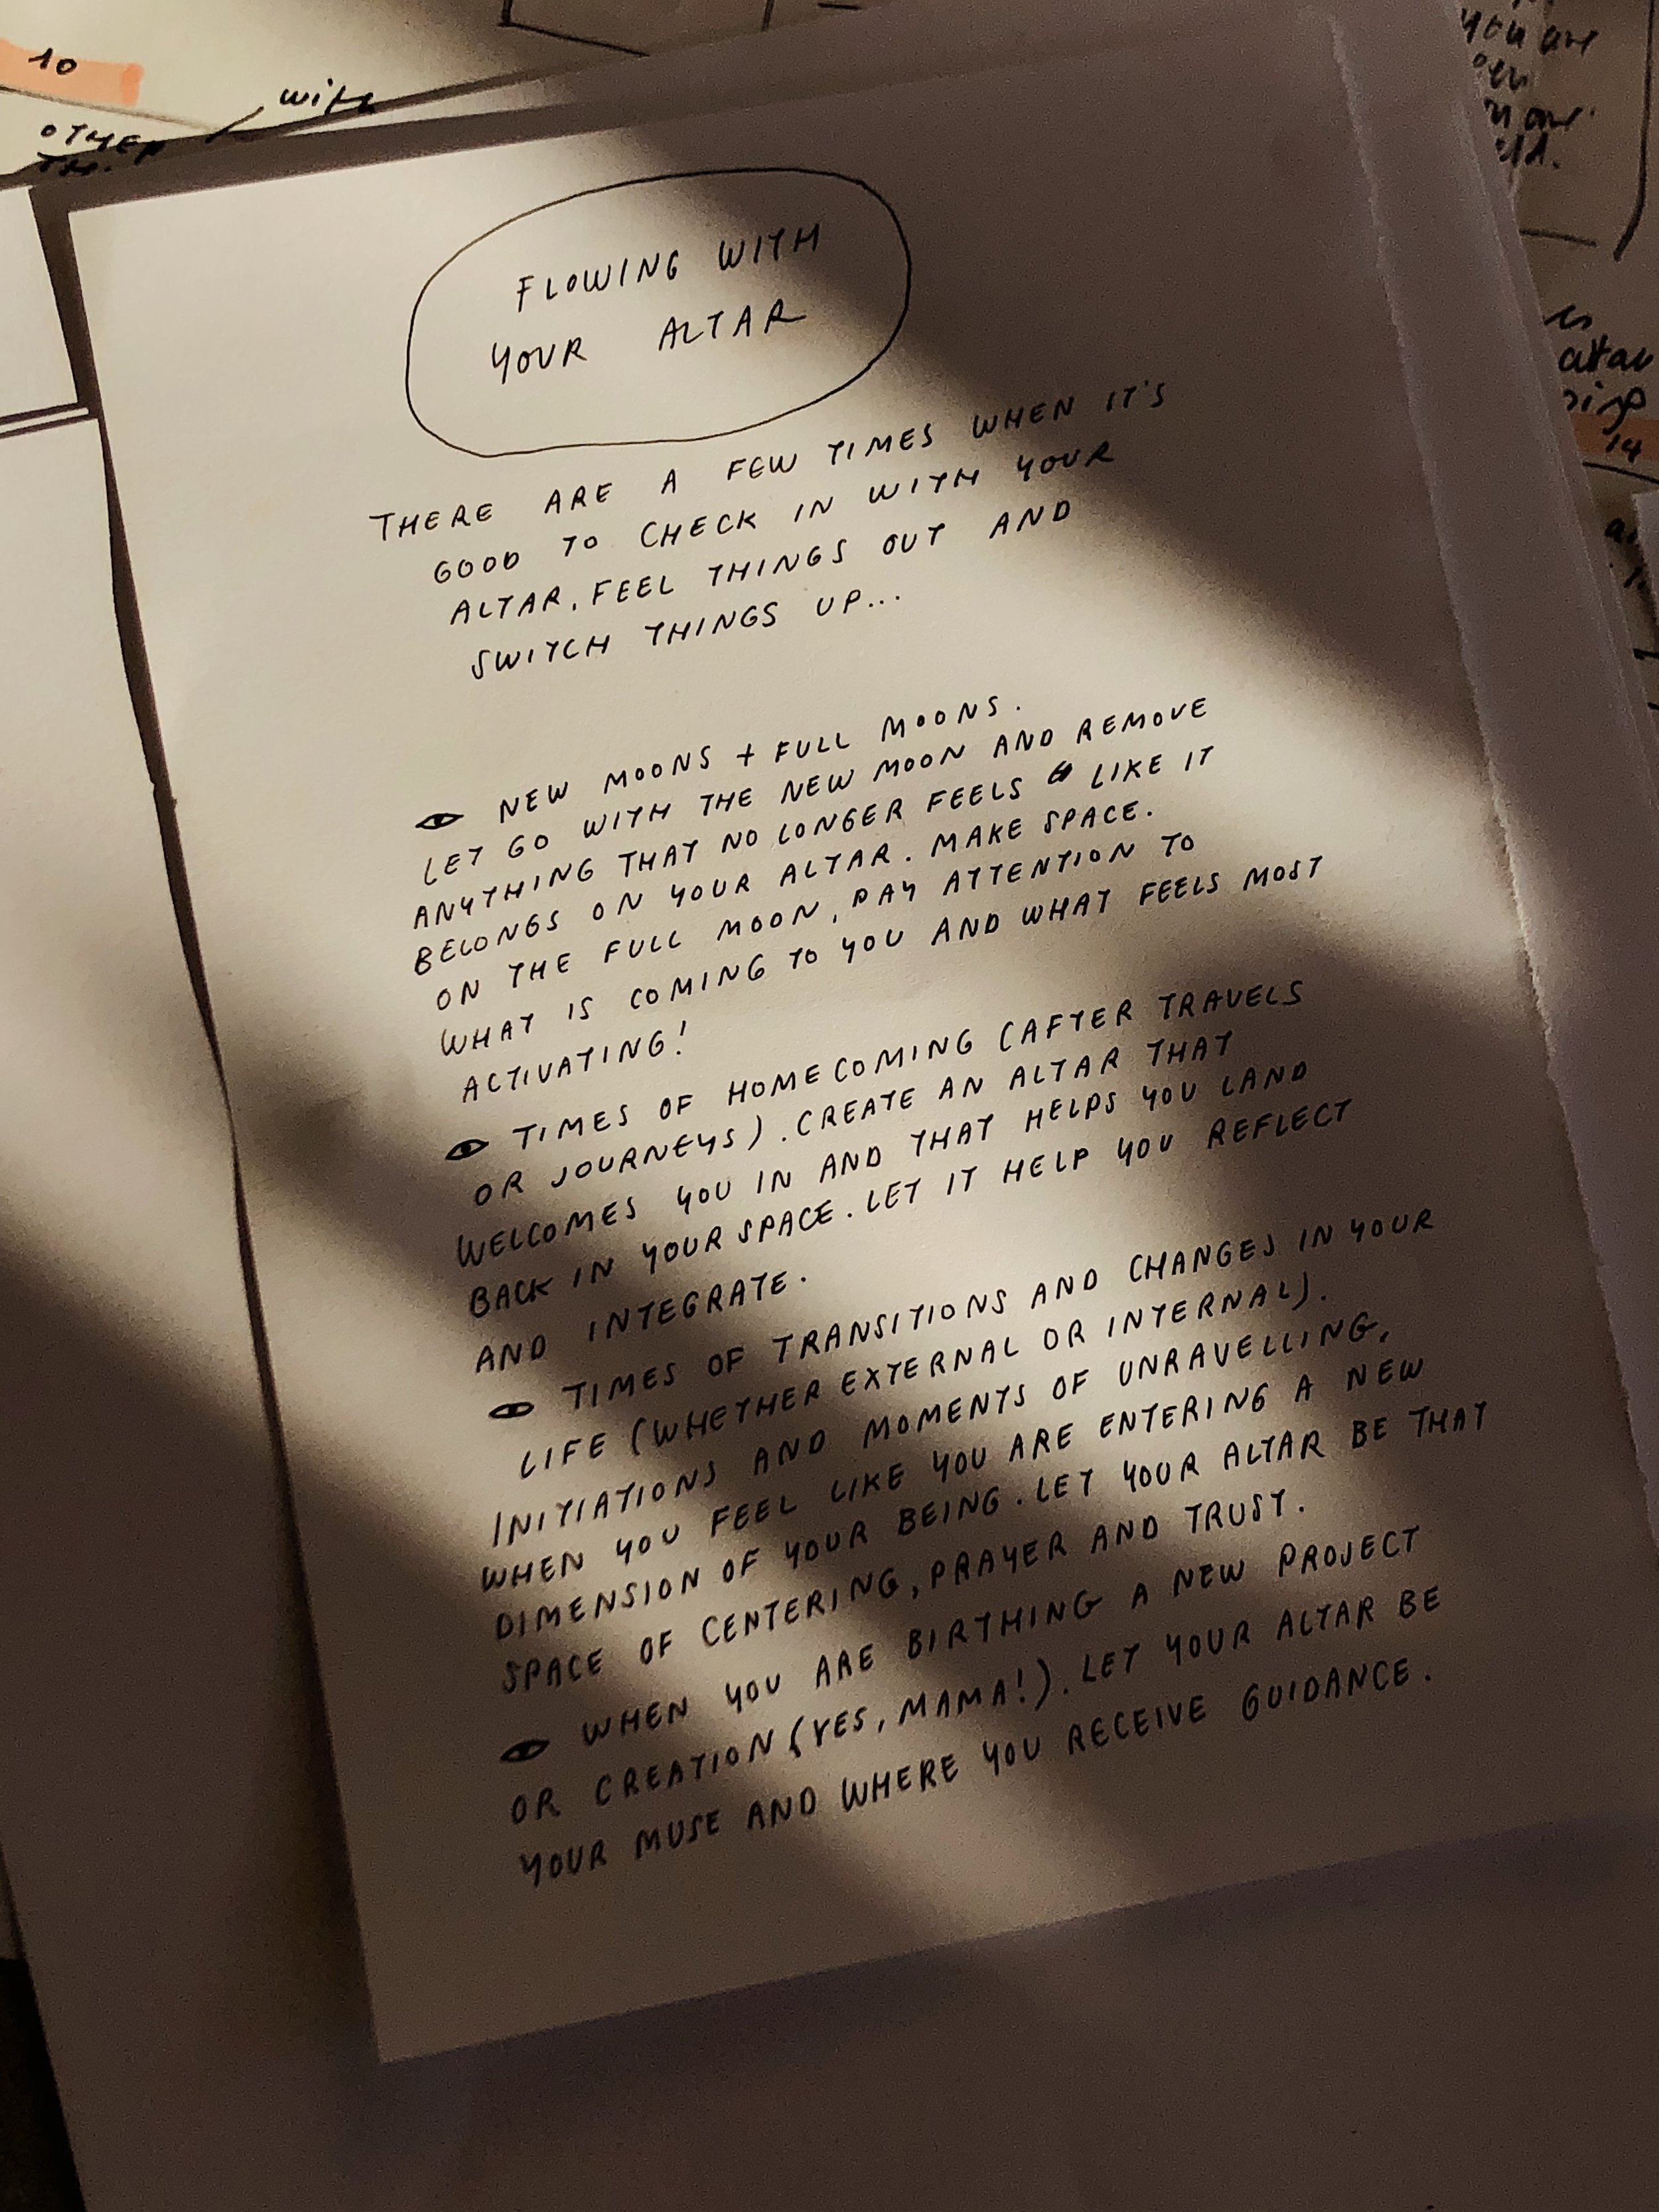 10
with
OTHER
you are
FLOWING WITH
YOUR ALTAR
THERE ARE A FEW TIMES WHEN IT'S
GOOD TO CHECK IN WITH YOUR
ALTAR, FEEL THINGS OUT AND
SWITCH THINGS UP...
NEW MOONS + FULL MOONS.
LET GO WITH THE NEW MOON AND REMOVE
ANYTHING THAT NO LONGER FEELS LIKE IT
BELONGS ON YOUR ALTAR. MAKE SPACE.
ON THE FULL MOON, PAY ATTENTION TO
WHAT IS COMING TO YOU AND WHAT FEELS MOST
ACTIVATING!
TIMES OF HOMECOMING (AFTER TRAVELS
OR JOURNEYS). CREATE AN ALTAR THAT
WELCOMES YOU IN AND THAT HELPS YOU LAND
BACK IN YOUR SPACE. LET IT HELP YOU REFLECT
AND INTEGRATE.
TIMES OF TRANSITIONS AND CHANGES IN YOUR
LIFE (WHETHER EXTERNAL OR INTERNAL).
INITIATIONS AND MOMENTS OF UNRAVELLING,
WHEN YOU FEEL LIKE YOU ARE ENTERING A NEW
DIMENSION OF YOUR BEING. LET YOUR ALTAR BE THAT
SPACE OF CENTERING, PRAYER AND TRUST.
WHEN YOU ARE BIRTHING A NEW PROJECT
OR CREATION (YES, MAMA!). LET YOUR ALTAR BE
YOUR MUSE AND WHERE YOU RECEIVE GUIDANCE.
altar
14